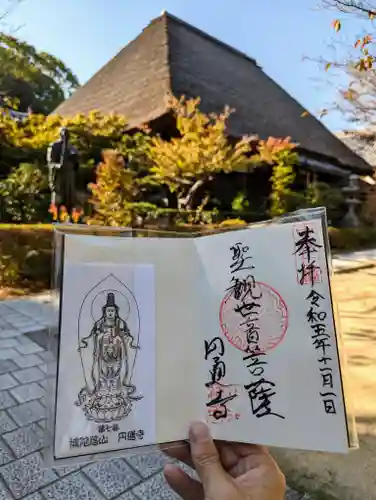 奉拝
令和五年十二月一日
聖観世音菩薩
円通寺
第七番
円通寺